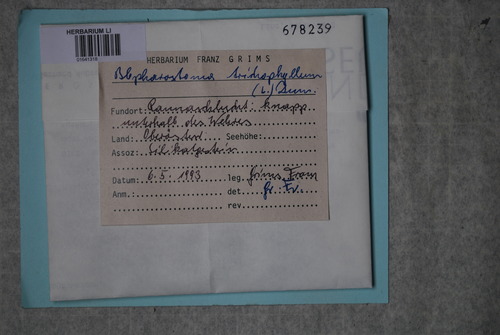 HERBARIUM LI
678239
HERBARIUM FRANZ GRIMS
Blepharostoma trichophyllum
(L.) Dum.
Fundort: Rannaschlucht knapp
unterhalb des Wehres
Land: Oberöster. Seehöhe:
Assoz: Silikatgestein
Datum: 6.5.1993 leg. Grims Franz
Anm.: det. Gr. Fr.
rev.